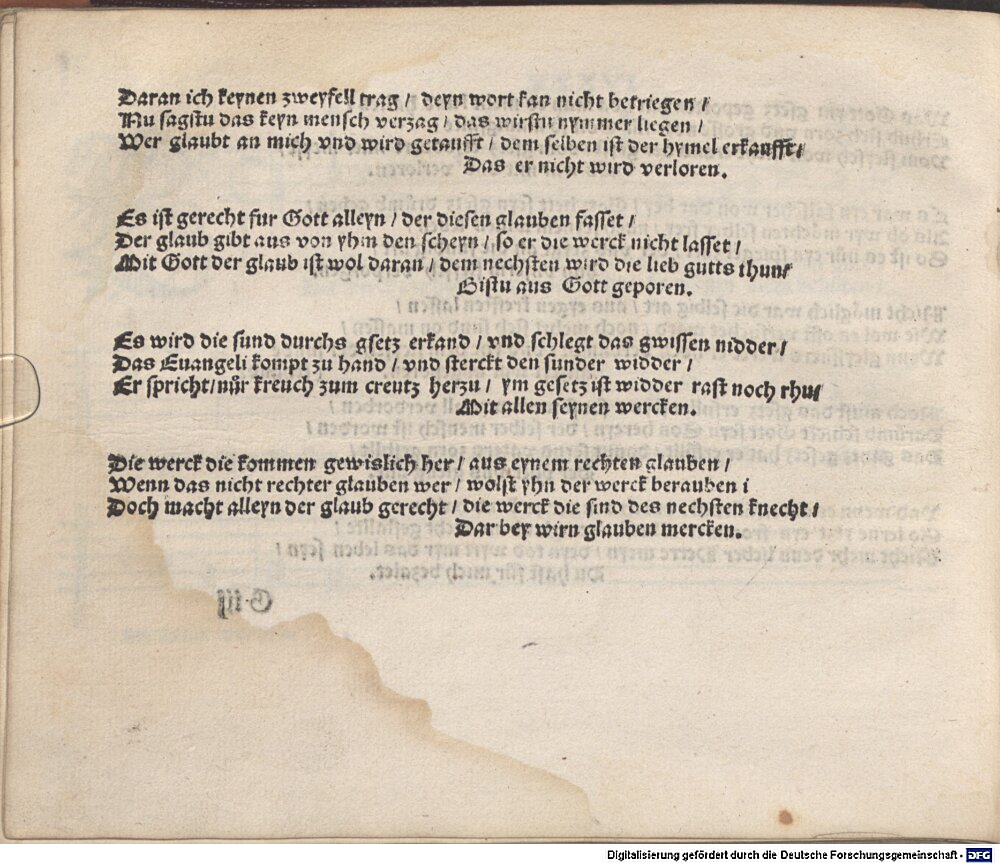 Daran ich keynen zweyfell trag / deyn wort kan nicht betriegen /
Nu sagstu das keyn mensch verzag / das wirstu nymmer liegen /
Wer glaubt an mich vnd wird getaufft / dem selben ist der hymel erkaufft /
Das er nicht wird verloren.
Es ist gerecht fur Gott alleyn / der diesen glauben fasset /
Der glaub gibt aus von yhm den scheyn / so er die werck nicht lasset /
Mit Gott der glaub ist wol daran / dem nechsten wird die lieb gutts thun /
Bistu aus Gott geporen.
Es wird die sund durchs gsetz erkand / vnd schlegt das gwissen nidder /
Das Euangeli kompt zu hand / vnd sterckt den sunder widder /
Er spricht / nür kreuch zum creutz herzu / ym gesetz ist widder rast noch rhu /
Mit allen seynen wercken.
Die werck die kommen gewislich her / aus eynem rechten glauben /
Wenn das nicht rechter glauben wer / wolst yhn der werck berauben i
Doch macht alleyn der glaub gerecht / die werck die sind des nechsten knecht /
Dar bey wirn glauben mercken.
Digitalisierung gefördert durch die Deutsche Forschungsgemeinschaft - DFG